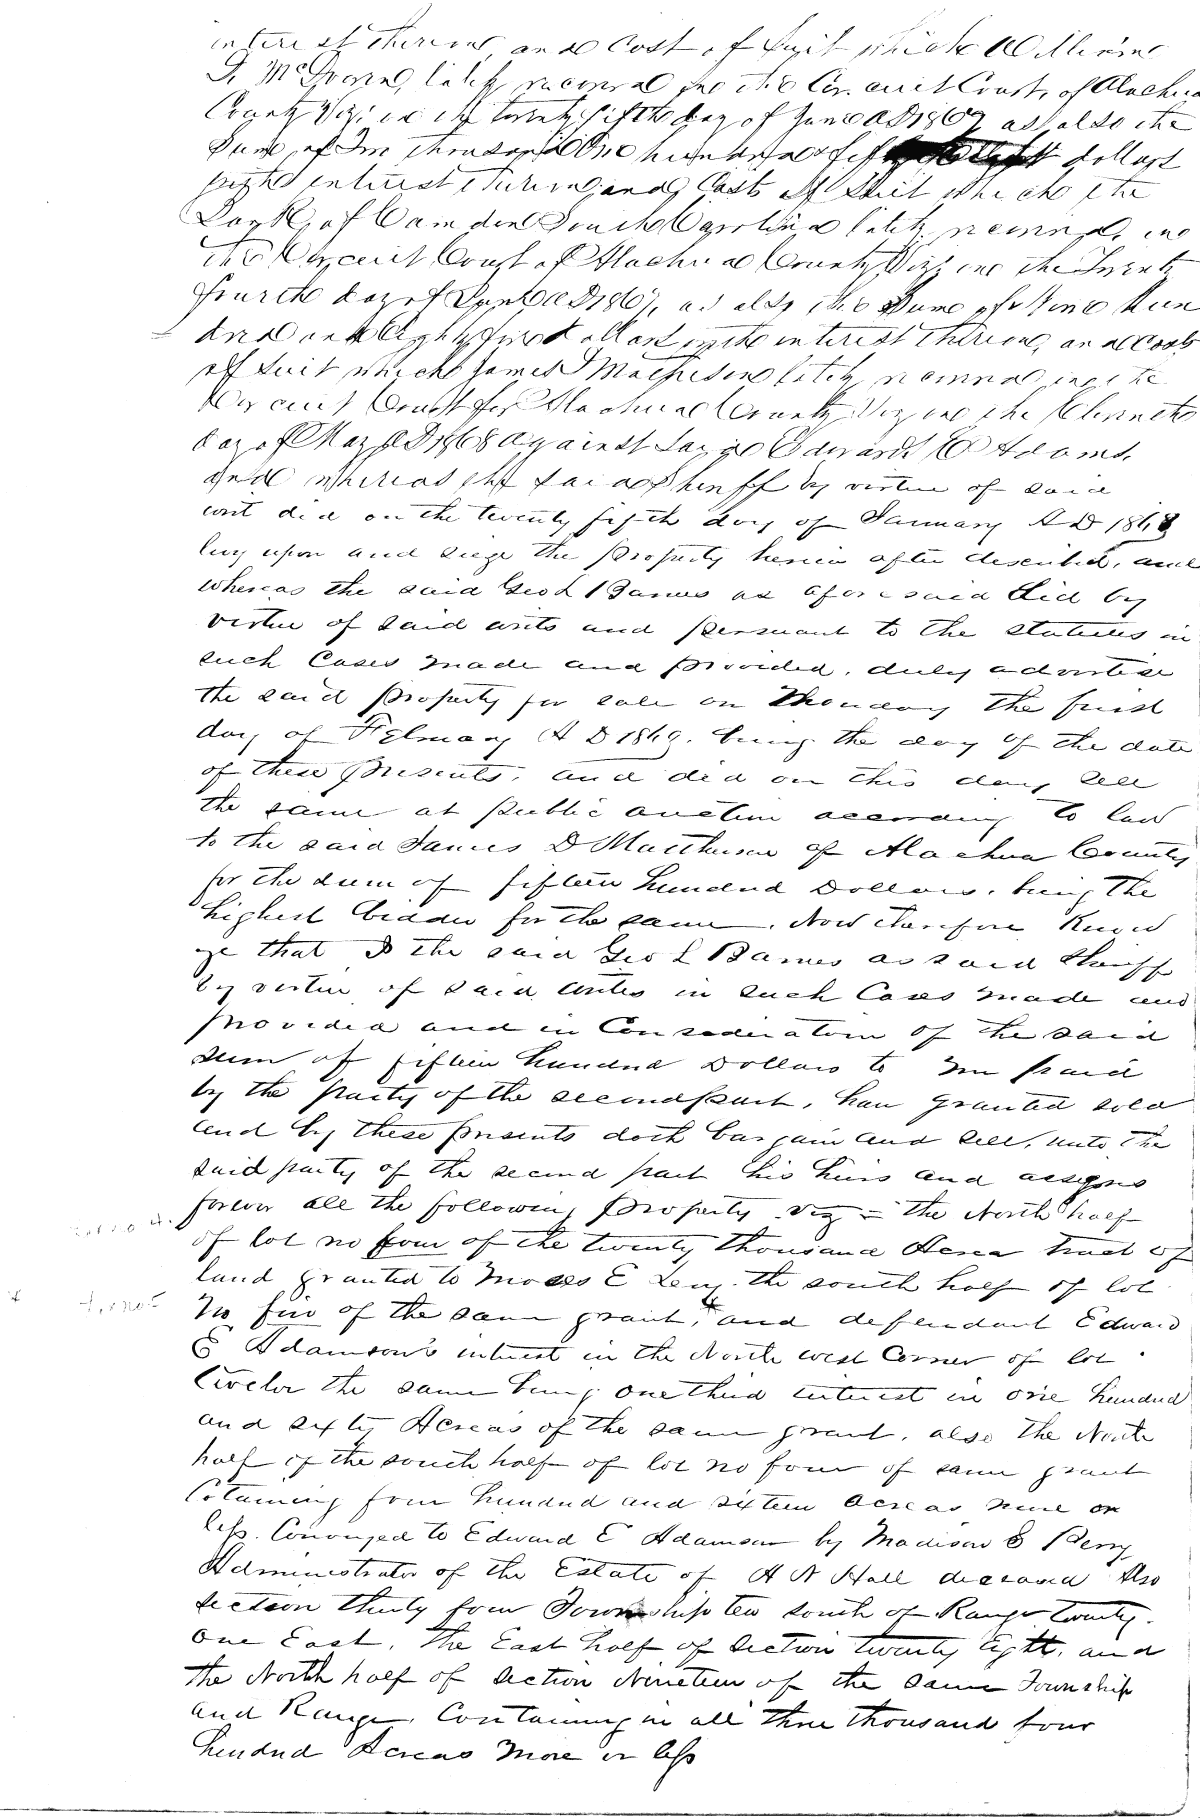 interest thereon and Cost of Suit which William
lately recovered in the Circuit Court, of Alachua
County Viz: on the twenty fifth day of June A D 1867 as also the
Sum of thousand One hundred & fifty dollars
with interest thereon and Costs of Suit which the
Bank of Camden South Carolina lately recovered, in
the Circuit Court of Alachua County Viz: on the Twenty
fourth day of June A D 1867, as also the Sum of Nine Hun
dred and Eighty five dollars with interest thereon, and Costs
of Suit which James D Matheson lately recovered in the
Circuit Court for Alachua County Viz on the Eleventh
day of May A D 1868 Against Said Edward E Adams.
and whereas the said Sheriff by virtue of said
writ did on the twenty fifth day of January A D 1868
levy upon and seize the property herein after described, and
whereas the said Geo L Barnes as aforesaid did by
virtue of said writs and persuant to the statutes in
such Cases made and provided, duly advertise
the said property for sale on Monday the first
day of February A D 1869. being the day of the date
of these presents, and did on this day sell
the same at public auction according to law
to the said James D Matthewson of Alachua County
for the sum of fifteen hundred Dollars, being the
highest bidder for the same. Now therefore Know
ye that I the said Geo L Barnes as said Sheriff
by virtue of said writs in such Cases made and
provided and in Consideration of the said
sum of fifteen hundred Dollars to me paid
by the party of the second part, have granted sold
and by these presents doth bargain and sell, unto the
said party of the second part his heirs and assigns
forever all the following property viz = the North half
of lot no four of the twenty thousand Acrea tract of
land granted to Moses E Levy. the south half of lot
No five of the same grant, and defendant Edward
E Adamson's interest in the North west Corner of lot
twelve the same being one third interest in one hundred
and sixty Acreas of the same grant, also the North
half of the south half of lot no four of same grant
Cotaining four hundred and sixteen acreas more or
less. Convayed to Edward E Adamson by Madison S Perry
Administrator of the Estate of H N Hall deceased Also
section thirty four Township ten south of Range twenty-
one East, the East half of section twenty Eight, and
the North half of section Nineteen of the same Township
and Range, Containing in all three thousand four
hundred Acreas more or less